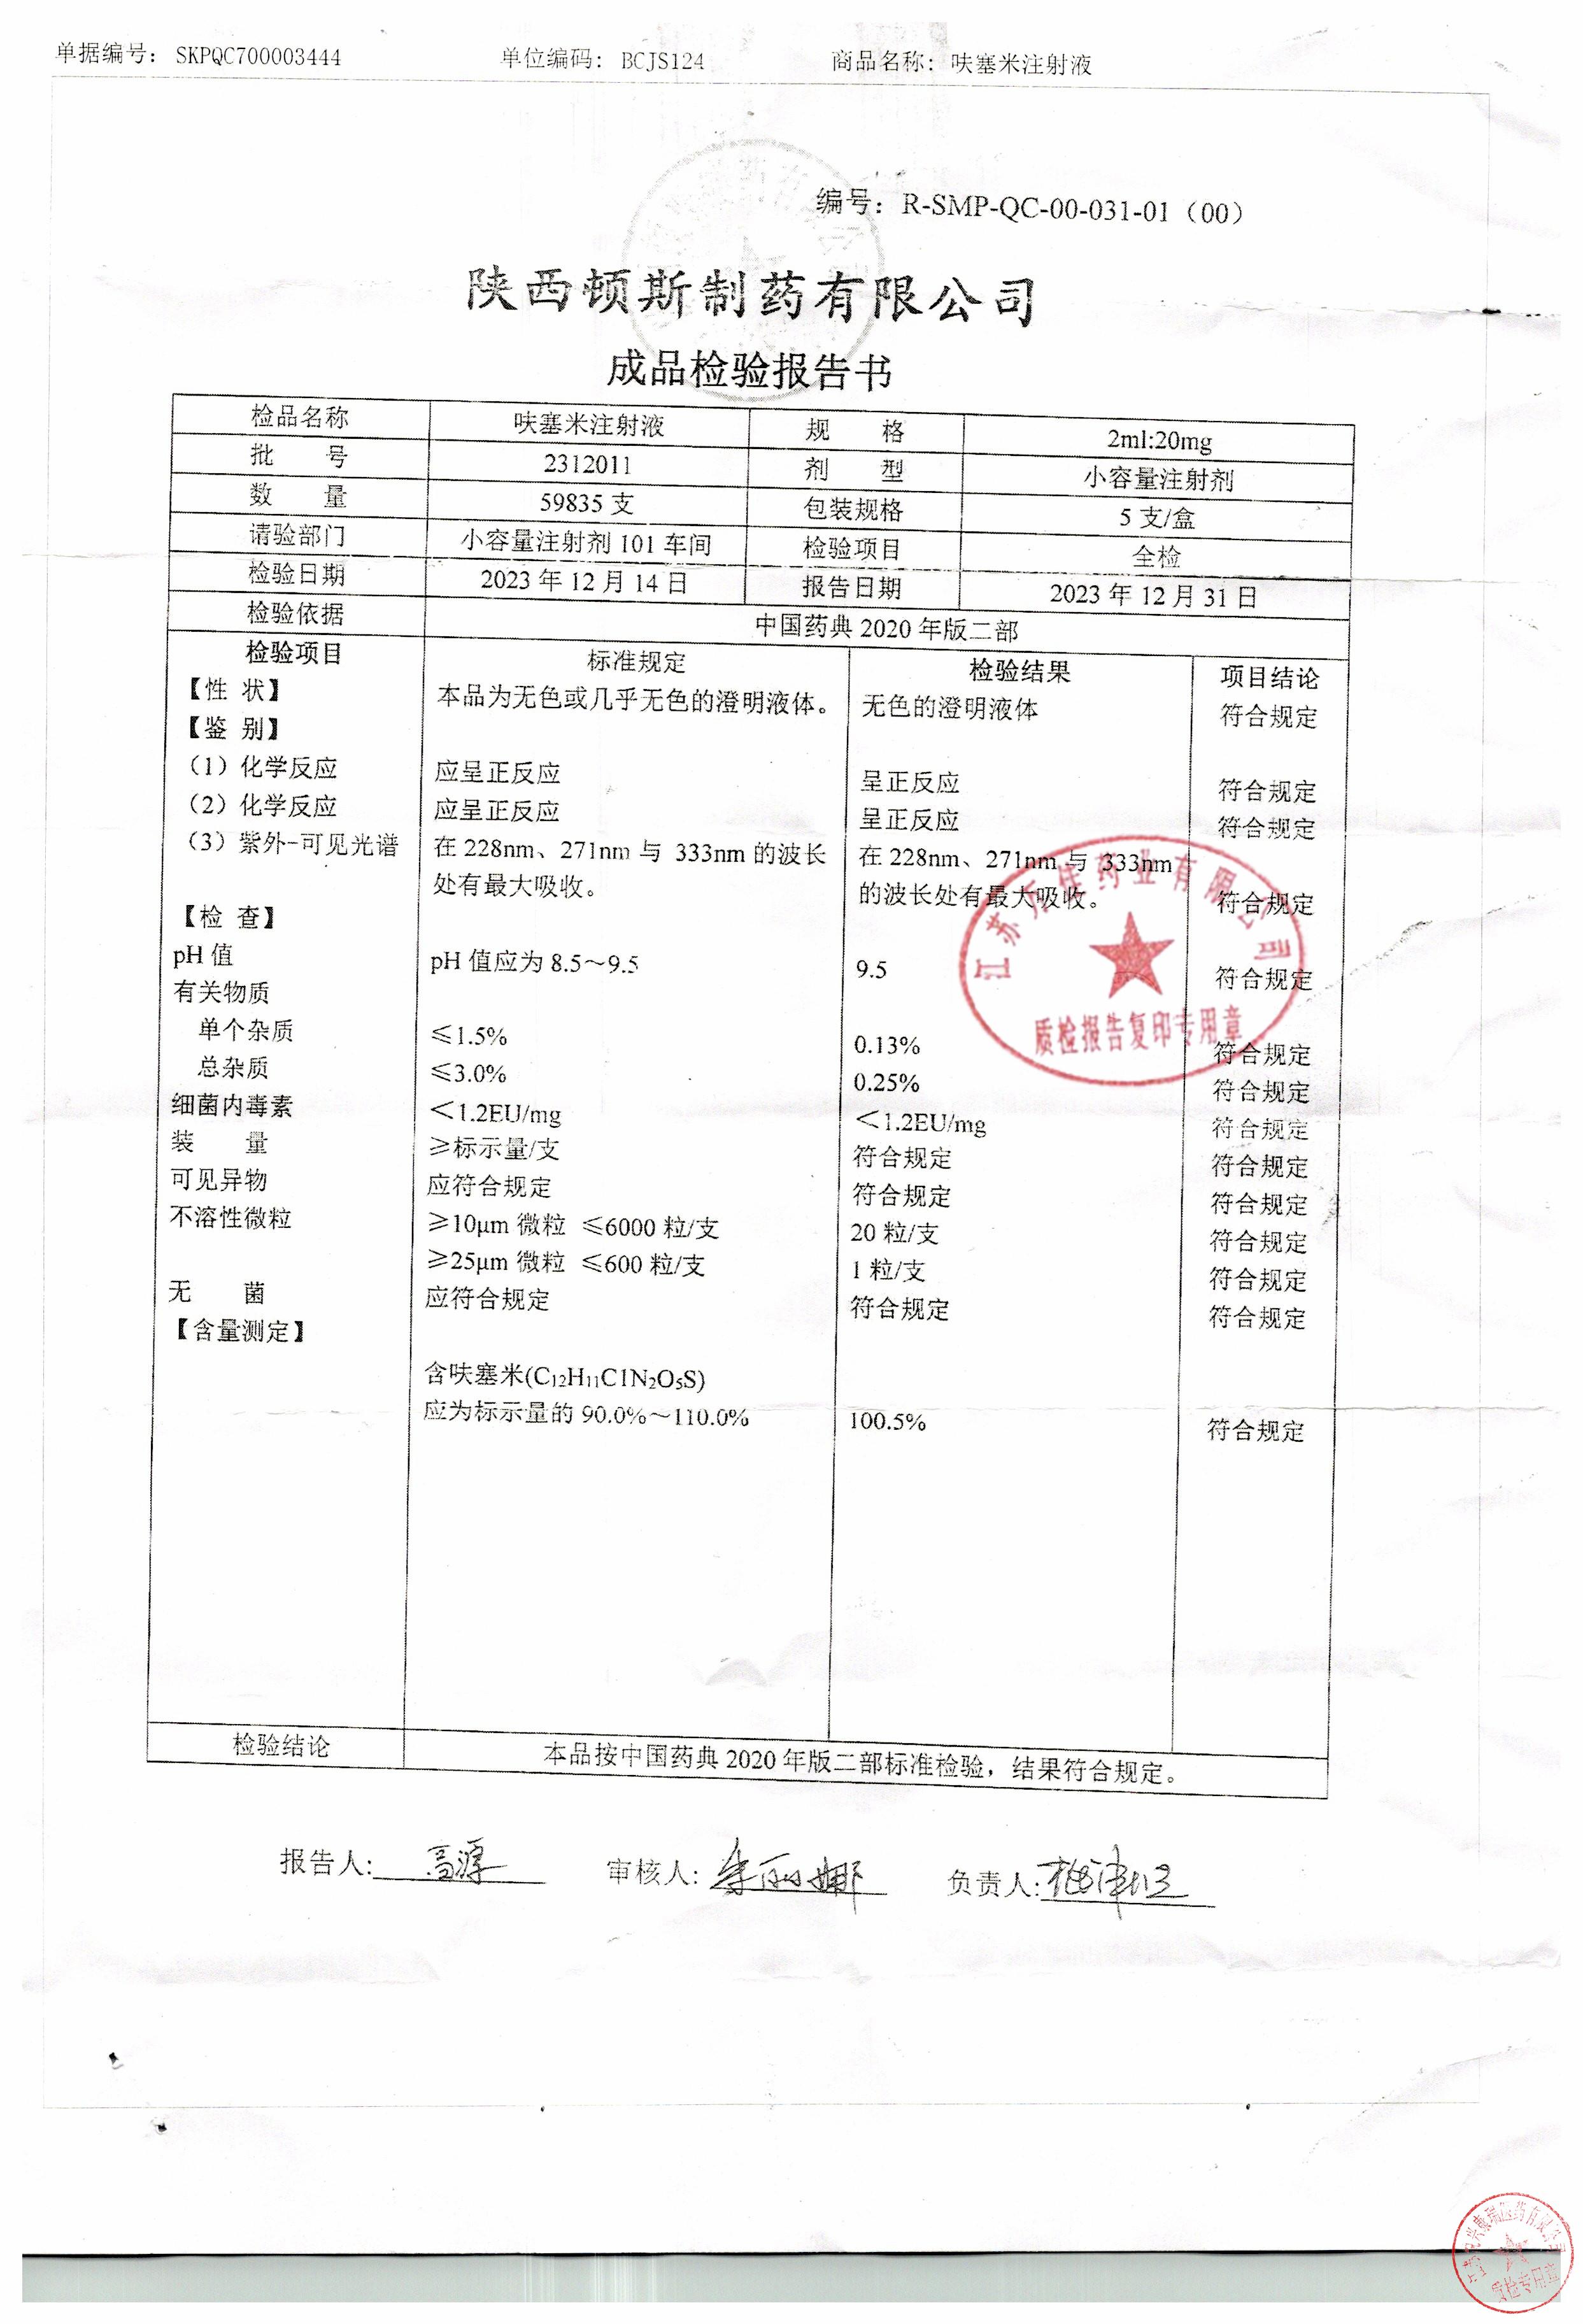 单据编号: SKPQC700003444 单位编码: BCJS124 商品名称: 呋塞米注射液
编号：R-SMP-QC-00-031-01（00）
陕西顿斯制药有限公司
成品检验报告书
检品名称 呋塞米注射液 规 格 2ml:20mg
批 号 2312011 剂 型 小容量注射剂
数 量 59835 支 包装规格 5 支/盒
请验部门 小容量注射剂 101 车间 检验项目 全检
检验日期 2023 年 12 月 14 日 报告日期 2023 年 12 月 31 日
检验依据 中国药典 2020 年版二部
检验项目 标准规定 检验结果 项目结论
【性 状】 本品为无色或几乎无色的澄明液体。 无色的澄明液体 符合规定
【鉴 别】
（1）化学反应 应呈正反应 呈正反应 符合规定
（2）化学反应 应呈正反应 呈正反应 符合规定
（3）紫外-可见光谱 在 228nm、271nm 与 333nm 的波长 在 228nm、271nm 与 333nm
处有最大吸收。 的波长处有最大吸收。 符合规定
【检 查】
pH 值 pH 值应为 8.5～9.5 9.5 符合规定
有关物质
单个杂质 ≤1.5% 0.13% 符合规定
总杂质 ≤3.0% 0.25% 符合规定
细菌内毒素 ＜1.2EU/mg ＜1.2EU/mg 符合规定
装 量 ≥标示量/支 符合规定 符合规定
可见异物 应符合规定 符合规定 符合规定
不溶性微粒 ≥10μm 微粒 ≤6000 粒/支 20 粒/支 符合规定
≥25μm 微粒 ≤600 粒/支 1 粒/支 符合规定
无 菌 应符合规定 符合规定 符合规定
【含量测定】
含呋塞米(C₁₂H₁₁C1N₂O₅S)
应为标示量的 90.0%～110.0% 100.5% 符合规定
江苏万佳药业有限公司
质检报告复印专用章
检验结论 本品按中国药典 2020 年版二部标准检验，结果符合规定。
报告人: 高源 审核人: 李丽娜 负责人:
质检专用章